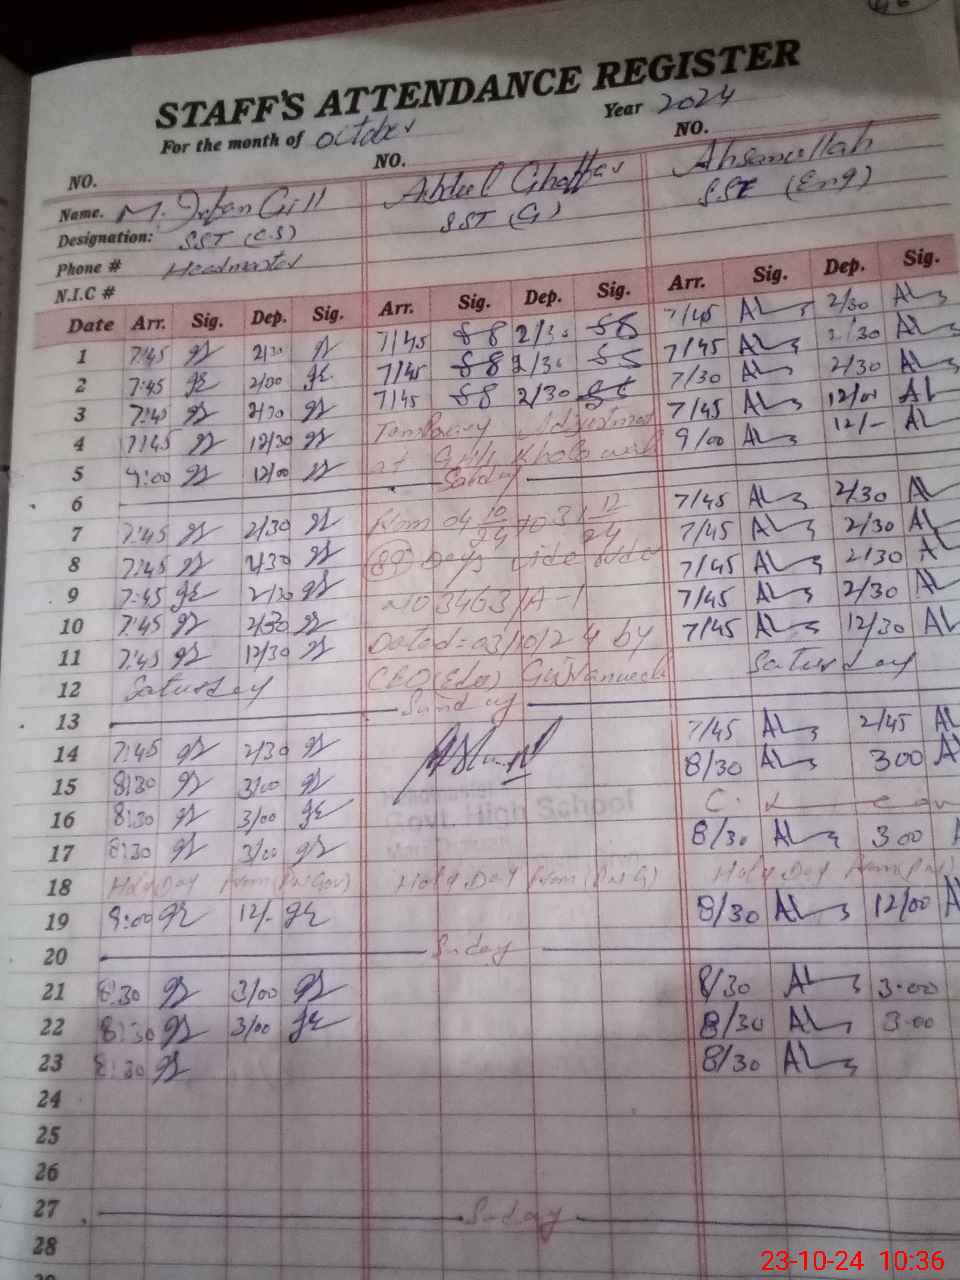 STAFF'S ATTENDANCE REGISTER
For the month of October Year 2024
NO. NO. NO.
Name. M. Irfan Gill Abdul Ghaffar Ahsanullah
Designation: SST (C.S) SST (G) SSE (Eng)
Phone # Headmaster
N.I.C #
Date Arr. Sig. Dep. Sig. Arr. Sig. Dep. Sig. Arr. Sig. Dep. Sig.
1 7:45 2/30 7/45 2/30 7/45 2/30
2 7:45 2/00 7/45 2/30 7/45 2/30
3 7:40 2/30 7/45 2/30 7/30 2/30
4 7/45 12/30 Temporary 7/45 12/00
5 9:00 12/00 at 9/00 12/-
6 Sunday
7 7:45 2/30 from 04 10/24 to 31 12/24 7/45 2/30
8 7:45 2/30 (89) Days vide 7/45 2/30
9 7:45 2/30 NO 3463/A-1 7/45 2/30
10 7:45 2/30 Dated = 03/10/24 by 7/45 2/30
11 7:45 12/30 CEO (Edu) Gujranwala 7/45 12/30
12 Saturday Saturday
13 Sunday
14 7:45 2/30 7/45 2/45
15 8:30 3/00 8/30 3 00
16 8:30 3/00 C. L
Govt. High School
17 8:30 3/00 8/30 3 00
18 Holy Day from (Pb Gov) Holy Day from (Pb G) Holy Day from (Pb
19 9:00 12/- 8/30 12/00
20 Sunday
21 8:30 3/00 8/30 3.00
22 8:30 3/00 8/30 3.00
23 8:30 8/30
24
25
26
27 Sunday
28
23-10-24 10:36